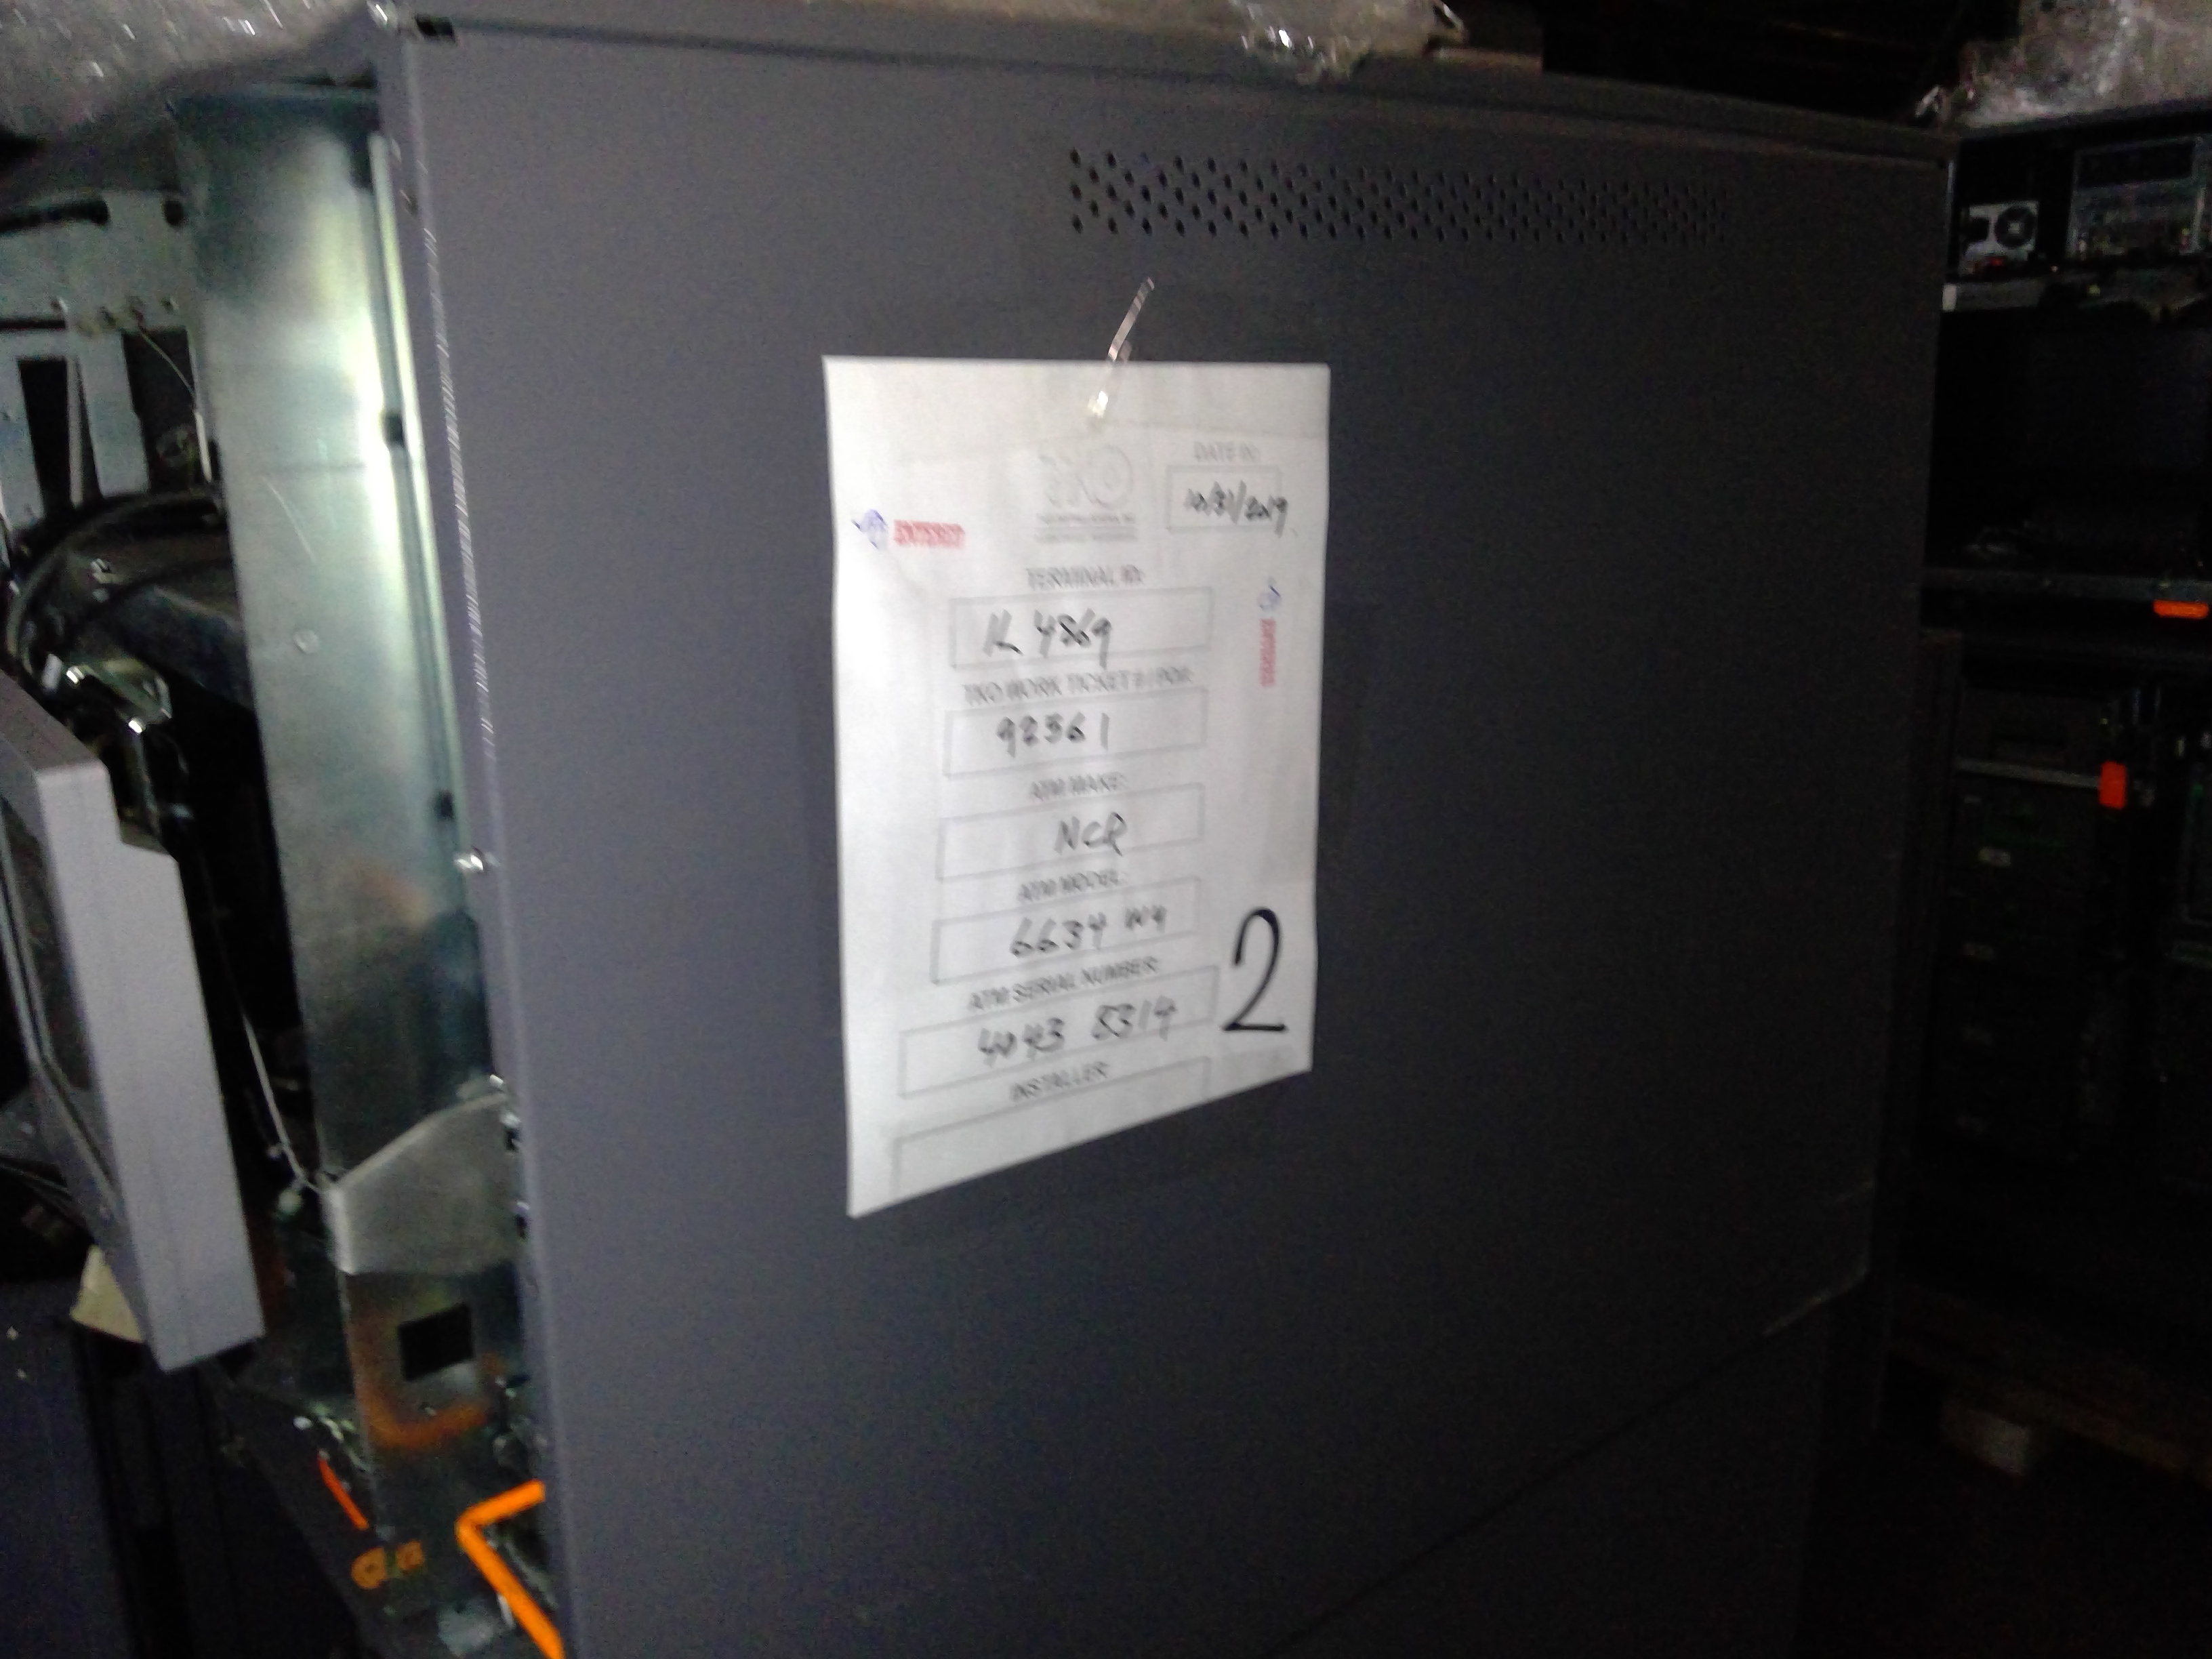 TKO
DATE IN:
10/31/2019
ENTERED
TERMINAL ID:
IL 4869
ENTERED
TKO WORK TICKET # / PO#:
92561
ATM MAKE:
NCR
ATM MODEL:
6634
ATM SERIAL NUMBER:
4043 8314
2
INSTALLER: